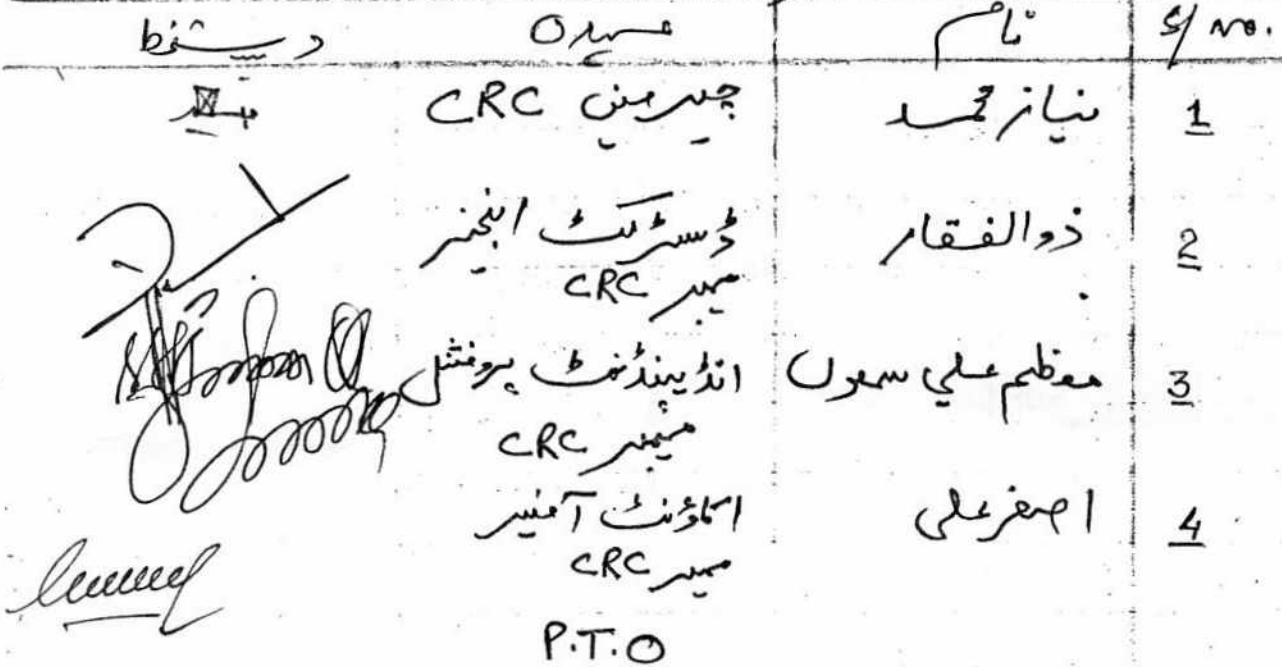 S/No. نام عہدہ دستخط
1 نیاز محمد چیرمین CRC
2 ذوالفقار ڈسٹرکٹ انجنیر
ممبر CRC
3 معظم علي سموں انڈیپنڈنٹ پروفشنل
ممبر CRC
4 اصغر علی اکاؤنٹ آفیسر
ممبر CRC
P.T.O